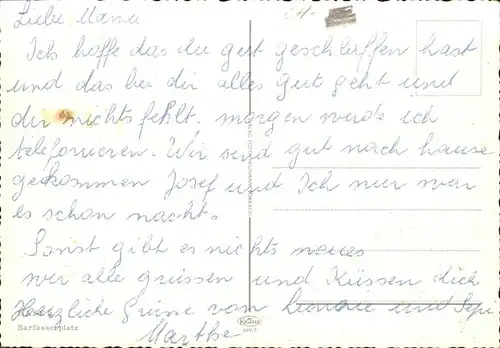 Liebe Mama
Ich hoffe das du gut geschlaffen hast
und das bei dir alles gut geht und
dir nichts fehlt. morgen werde ich
telefonieren. Wir sind gut nach hause
gekommen Josef und Ich nur war
es schon nacht.
Sonst gibt es nichts neues
wir alle grüssen und Küssen dich
Herzliche Grüsse von und Sepi
Marthe
Barfüsserplatz